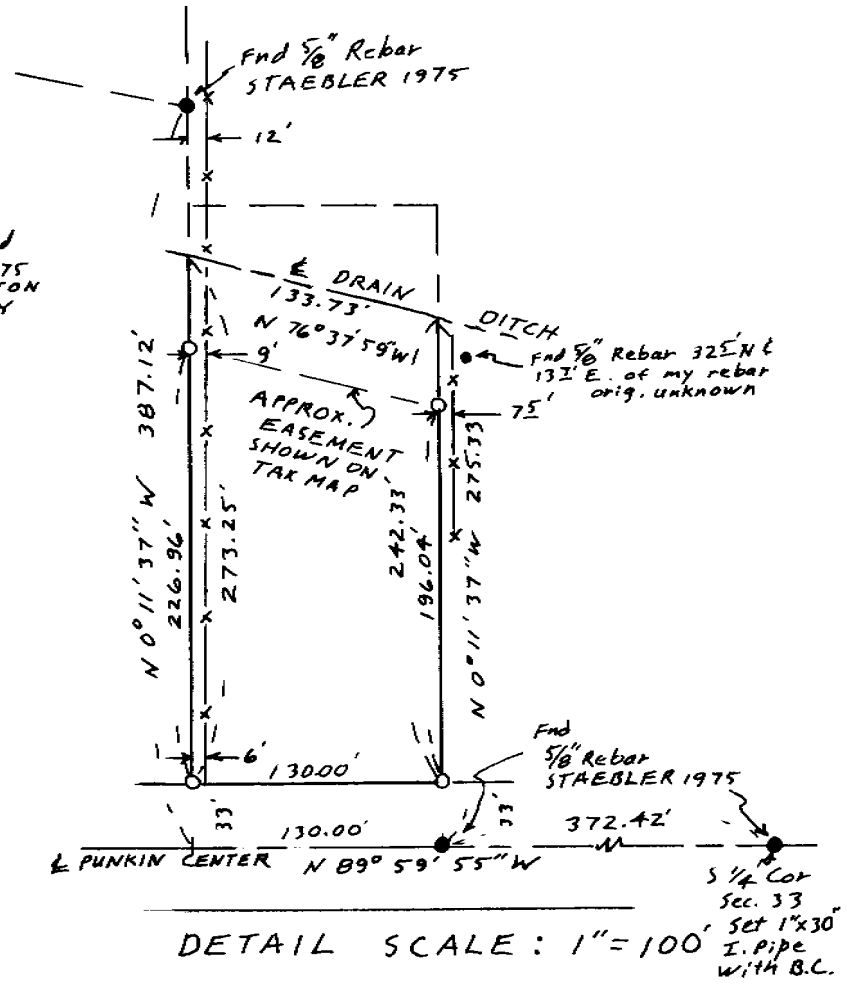 Fnd 5/8" Rebar
STAEBLER 1975
12'
75
TON
Y
℄ DRAIN
DITCH
133.73'
N 76° 37' 59" W
9'
Fnd 5/8" Rebar 32.5' N &
13.7' E. of my rebar
orig. unknown
7.5'
APPROX.
EASEMENT
SHOWN ON
TAX MAP
N 0° 11' 37" W 387.12'
226.96'
273.25'
242.33'
196.04'
N 0° 11' 37" W 275.33
6'
130.00'
33'
33'
Fnd
5/8" Rebar
STAEBLER 1975
130.00'
372.42'
℄ PUNKIN CENTER N 89° 59' 55" W
S 1/4 Cor
Sec. 33
Set 1"x30"
I. Pipe
with B.C.
DETAIL SCALE: 1"=100'